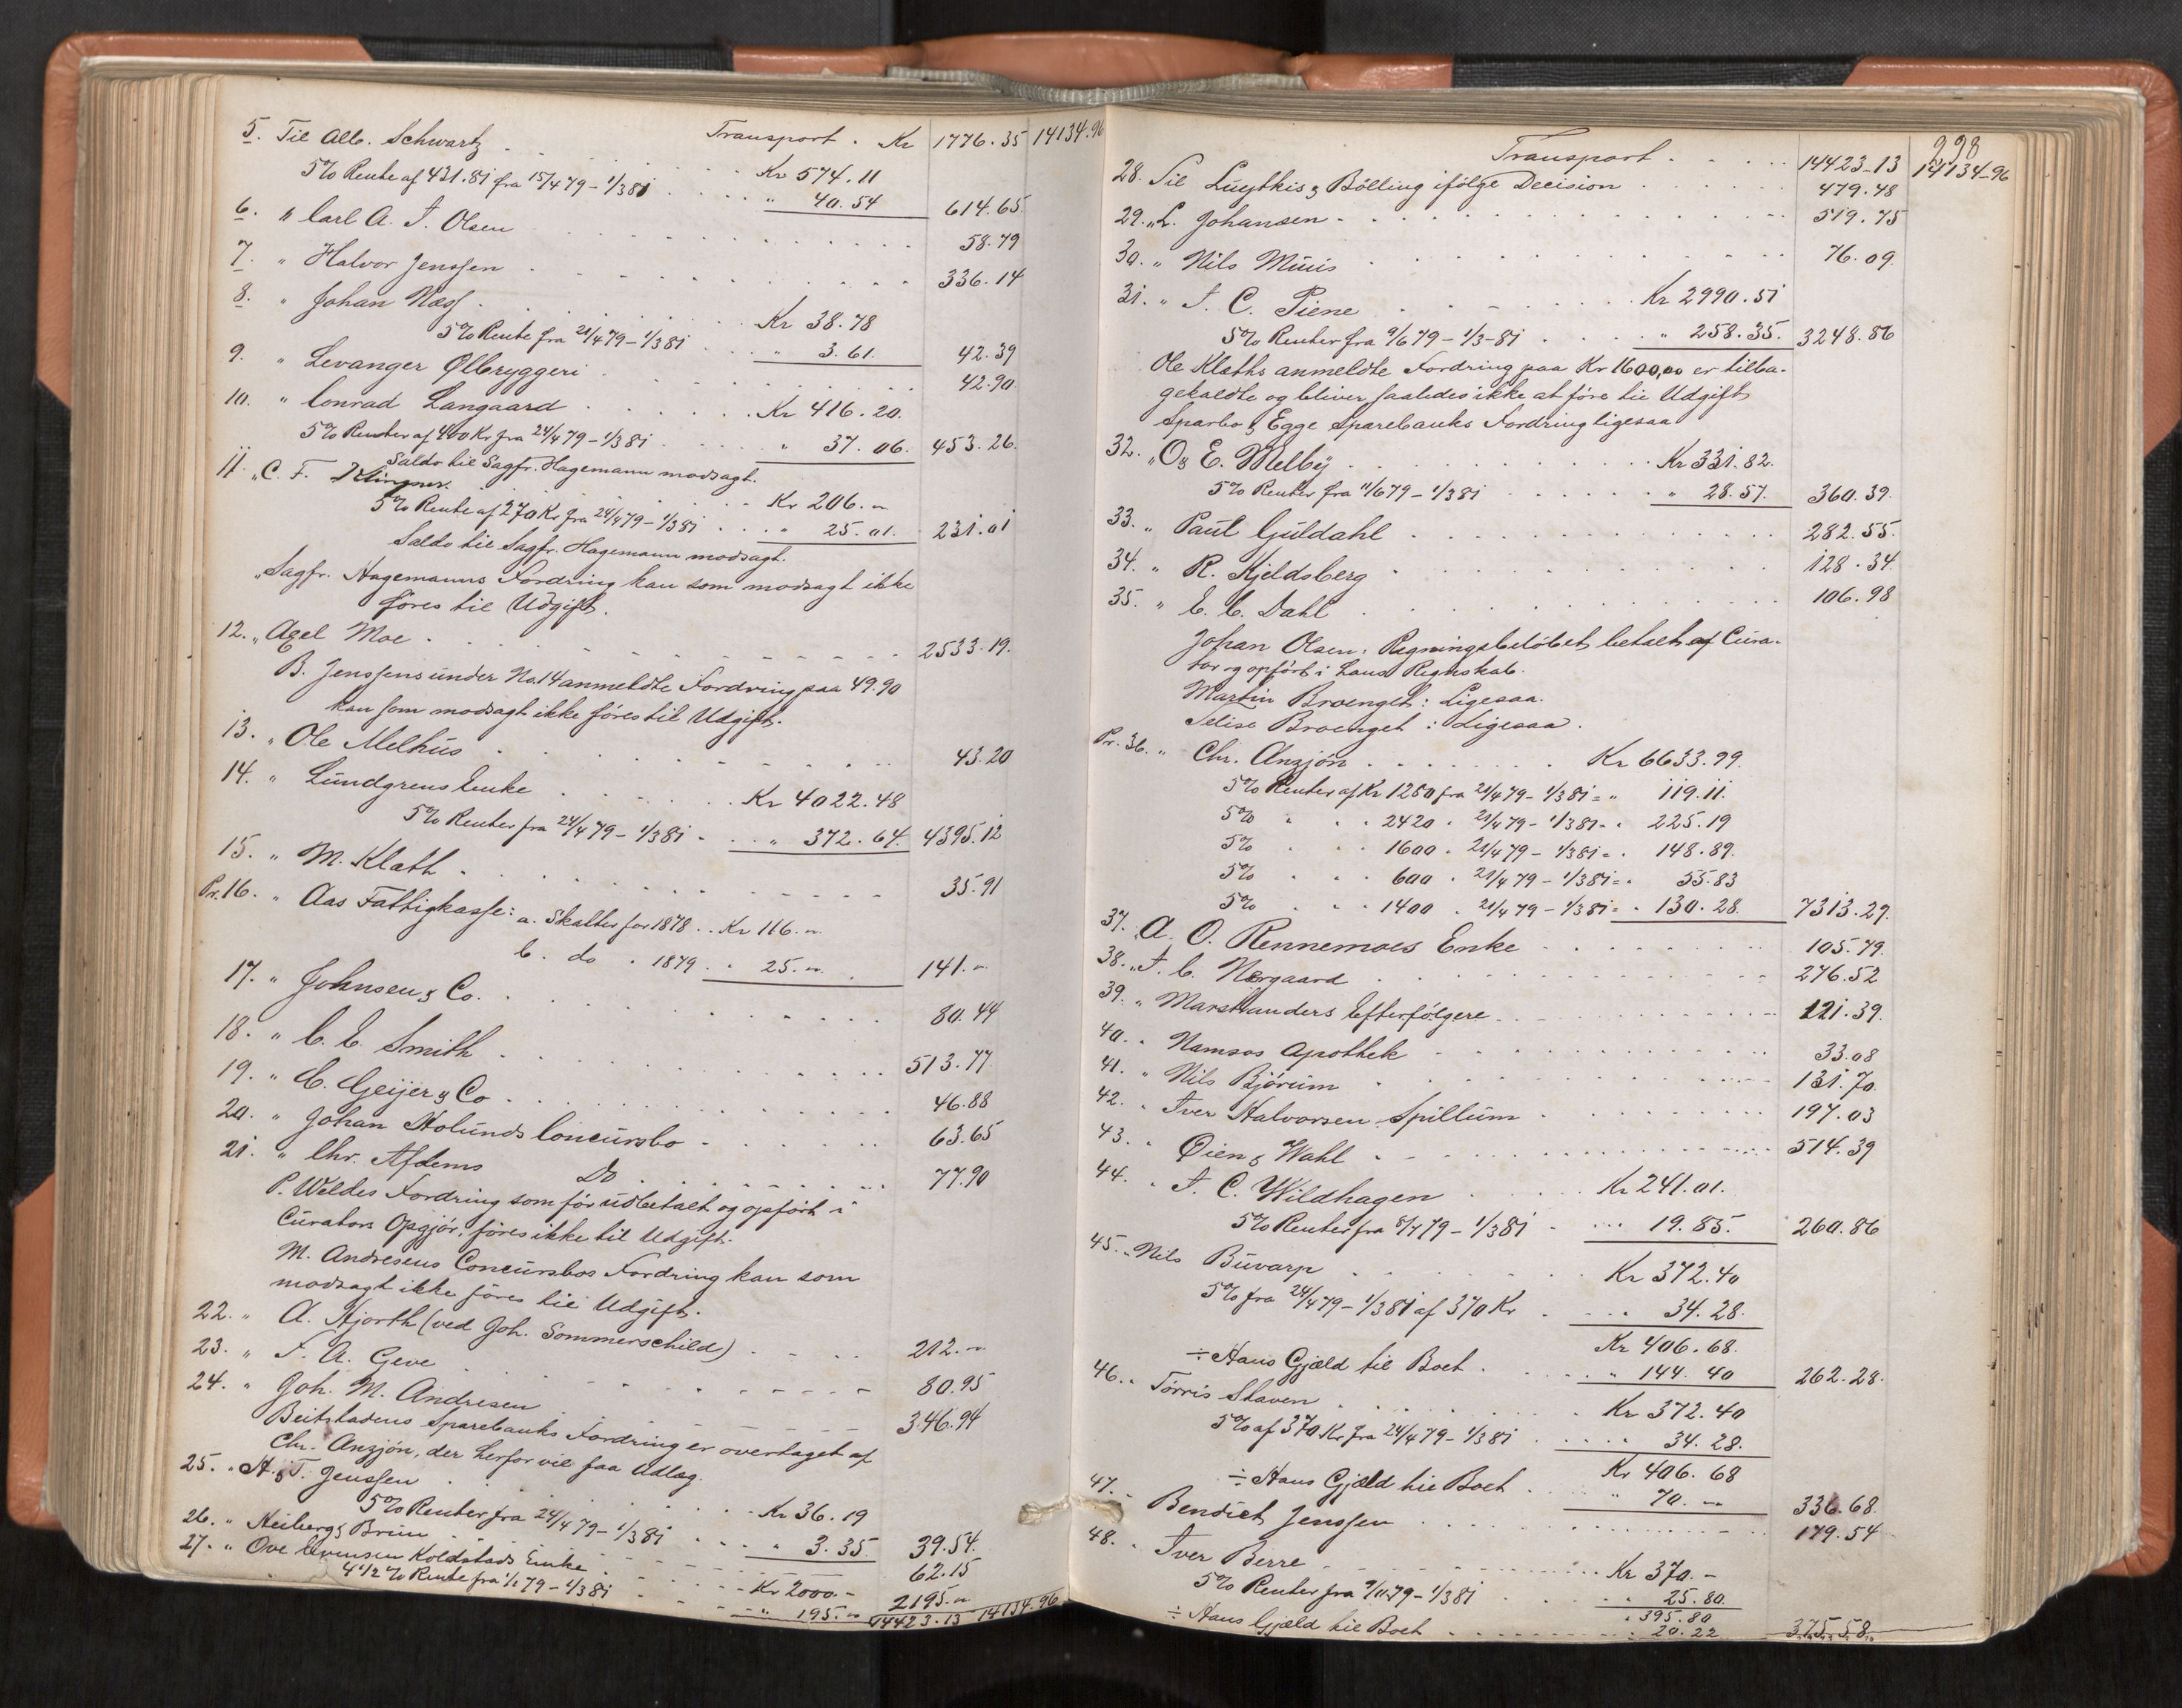 Transport . Kr 1776.35 14134.96
5. Til Alb. Schwartz . . . Kr 574.11
5% Rente af 431.81 fra 15/4 79 - 1/3 81 . . . " 40.54 614.65
6. " Carl A. T. Olsen . . . 58.79
7. " Halvor Jenssen . . . 336.14
8. " Johan Næss . . . Kr 38.78
5% Rente fra 21/4 79 - 1/3 81 . . . " 3.61. 42.39
9. " Levanger Ølbryggeri . . . 42.90
10. " Conrad Langaard . . . Kr 416.20.
5% Renter af 400 Kr fra 24/4 79 - 1/3 81 . . . " 37.06. 453.26.
Saldo til Sagfr. Hagemann modsagt.
11. " C. F. Klingner. . . Kr 206.-
5% Rente af 270 Kr fra 24/4 79 - 1/3 81 . . . " 25.01. 231.01
Saldo til Sagfr. Hagemann modsagt.
" Sagfr. Hagemanns Fordring kan som modsagt ikke
föres til Udgift.
12. " Axel Moe . . . 2533.19.
B. Jenssens under No. 14 anmeldte Fordring paa 49.90
kan som modsagt ikke föres til Udgift.
13. " Ole Melhus . . . 43.20
14. " Lundgrens Enke . . . Kr 4022.48
5% Renter fra 24/4 79 - 1/3 81 . . . " 372.64. 4395.12
15. " M. Klath . . . 35.91
Pr. 16. " Aas Fattigkasse: a. Skatter for 1878 . . Kr 116.-
b. do . 1879 . . 25.- . 141.-
17. " Johnsen & Co. . . . 80.44
18. " C. C. Smith . . . 513.77
19. " C. Geijer & Co . . . 46.88
20. " Johan Holunds Concursbo . . . 63.65
21. " Chr. Afdems Do . . . 77.90
P. Weldes Fordring som för udbetalt og opfört i
Curators Opgjör, föres ikke til Udgift.
M. Andresens Concursbos Fordring kan som
modsagt ikke föres til Udgift.
22. " A. Hjorth (ved Joh. Sommerschild) . . . 212.-
23. " F. A. Geve . . . 80.95
24. " Joh. M. Andresen . . . 346.94
Beitstadens Sparebanks Fordring er overtaget af
Chr. Anzjön, der herfor vil faa Udlæg.
25. " H. & T. Jenssen . . . Kr 36.19
5% Renter fra 24/4 79 - 1/3 81 . . . " 3.35. 39.54.
26. " Heiberg & Brun . . . 62.15
27. " Ove Koldstads Enke . . . Kr 2000.-
4 1/2 % Rente fra 1/1 79 - 1/3 81 . . . " 195.- 2195.-
14423.13 14134.96
298
Transport . . . 14423-13 14134-96
28. Til Luytkis & Bölling ifölge Decision . . . 479.48
29. " L. Johansen . . . 519.75
30. " Nils Muus . . . 76.09.
31. " I. C. Piene . . . Kr 2990.51
5% Renter fra 9/6 79 - 1/3 - 81 . . . " 258.35. 3248.86
Ole Klaths anmeldte Fordring paa Kr 1600,00 er tilba-
gekaldte og bliver saaledes ikke at före til Udgift
Sparbo & Egge Sparebanks Fordring ligesaa
32. " O & E. Melby . . . Kr 331.82.
5% Renter fra 11/6 79 - 1/3 81 . . . " 28.57. 360.39.
33. " Paul Guldahl . . . 282.55.
34. " R. Kjeldsberg . . . 128.34.
35. " E. C. Dahl . . . 106.98
Johan Olsen: Regningsbelöbet betalt af Cura-
tor og opfört i hans Regnskab.
Martin Broenget: Ligesaa.
Broenget: Ligesaa.
Pr. 36. " Chr. Anzjön . . . Kr 6633.99.
5% Renter af Kr 1280 fra 21/4 79 - 1/3 81 = " 119.11.
5% " . . 2420 . 21/4 79 - 1/3 81 - . 225.19
5% . . . 1600 . 21/4 79 - 1/3 81 = . 148.89.
5% . . . 600 . 21/4 79 - 1/3 81 = . 55.83
5% . . . 1400 . 21/4 79 - 1/3 81 = . 130.28. 7313.29.
37. " A. O. Rennemoes Enke . . . 105.79.
38. " I. C. Nørgaard . . . 276.52
39. " Marstranders Efterfölgere . . . 121.39.
40. " Namsos Apothek . . . 33.08
41. " Nils Björum . . . 131.70.
42. " Iver Halvorsen Spillum . . . 197.03
43. " Øien & Wahl . . . 514.39
44. " I. C. Wildhagen . . . Kr 241.01.
5% Renter fra 8/7 79 - 1/3 81 . . . 19.85. 260.86
45. " Nils Buvarp . . . Kr 372.40
5% fra 24/4 79 - 1/3 81 af 370 Kr . . . 34.28.
Kr 406.68.
÷ Hans Gjæld til Boet . . . " 144.40 262.28.
46. " Törris Skaven . . . Kr 372.40
5% af 370 Kr fra 24/4 79 - 1/3 81 . . . 34.28.
Kr 406.68
÷ Hans Gjæld til Boet . . . " 70.- 336.68.
47. " Bendict Jenssen . . . 179.54
48. " Iver Berre . . . Kr 370.-
5% Renter fra 9/10 79 - 1/3 81 . . . 25.80.
" 395.80
÷ Hans Gjæld til Boet . . . 20.22 375.58